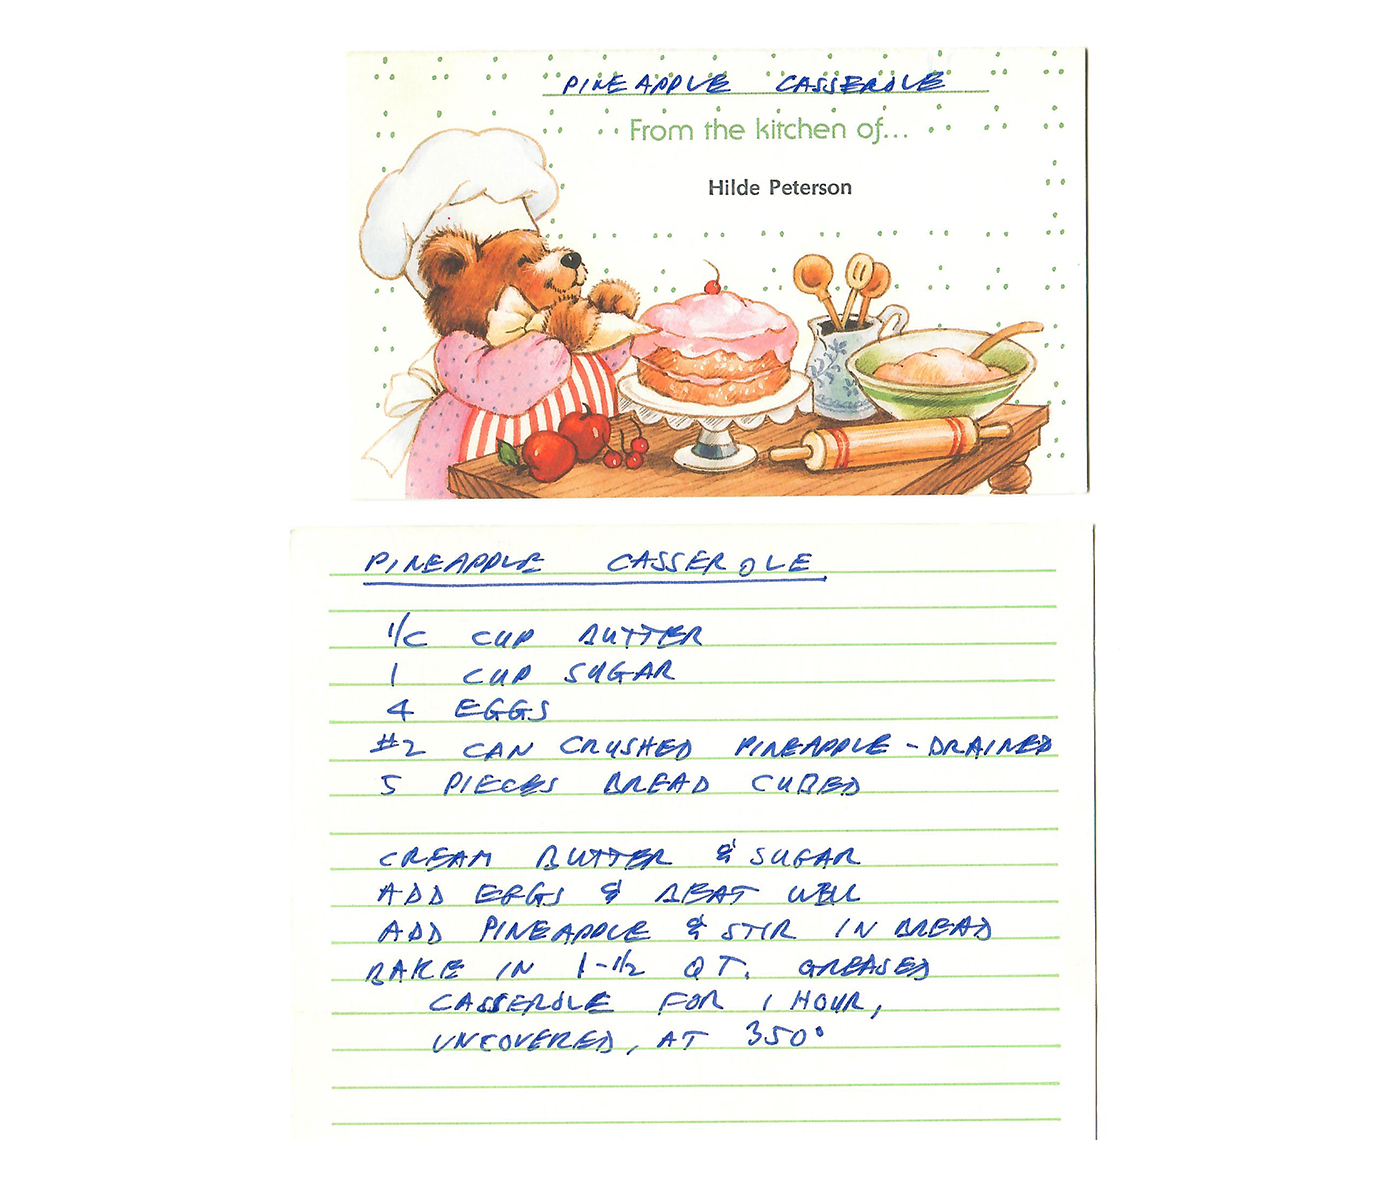 PINEAPPLE CASSEROLE
From the kitchen of...
Hilde Peterson
PINEAPPLE CASSEROLE
CUP BUTTER
1 CUP SUGAR
4 EGGS
#2 CAN CRUSHED PINEAPPLE - DRAINED
5 PIECES BREAD CUBED
CREAM BUTTER & SUGAR
ADD EGGS & BEAT WELL
ADD PINEAPPLE & STIR IN BREAD
BAKE IN 1-1/2 QT. GREASED
CASSEROLE FOR 1 HOUR,
UNCOVERED, AT 350°